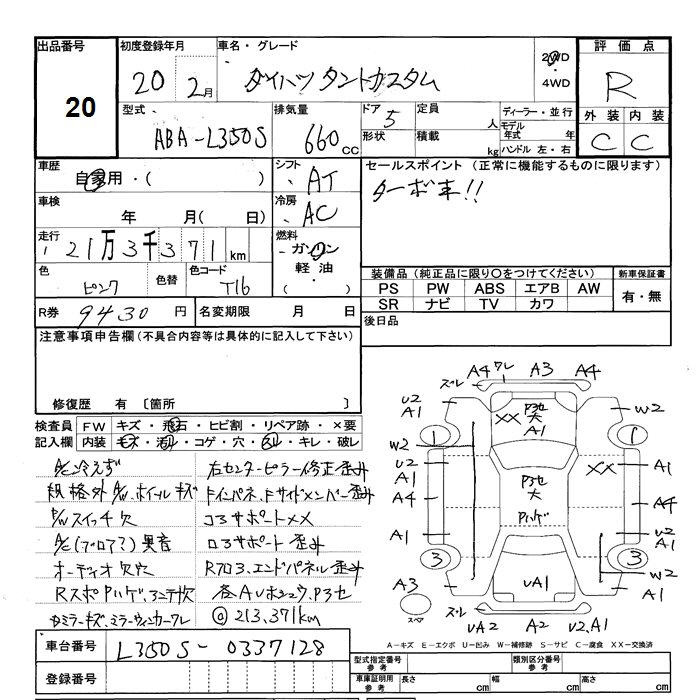 出品番号 初度登録年月 車名・グレード 2WD 評価点
20 20 2月 ダイハツ タントカスタム 4WD R
型式 排気量 ドア 定員 ディーラー・並行 外装 内装
ABA-L350S 660cc 5 人 モデル年式 年 C C
形状 積載 kg ハンドル 左・右
車歴 自家用・( ) シフト AT セールスポイント (正常に機能するものに限ります)
ターボ車!!
車検 年 月( 日) 冷房 AC
走行 21万3千371km 燃料 ガソリン
軽油・( )
色 ピンク 色替 色コード T16
装備品 (純正品に限り○をつけてください) 新車保証書
PS PW ABS エアB AW 有・無
SR ナビ TV カワ
R券 9430円 名変期限 月 日 後日品
注意事項申告欄(不具合内容等は具体的に記入して下さい)
修復歴 有 〔箇所 〕
検査員 FW キズ・飛石・ヒビ割・リペア跡・×要
記入欄 内装 キズ・汚レ・コゲ・穴・スレ・キレ・破レ
A/C冷えず 左センターピラー修正歪み
規格外A/W、ホイールキズ F インパネ、Fサイドメンバー歪み
P/Wスイッチ欠 コアサポート××
A/C(ブロア?)異音 ロアサポート歪み
オーディオ欠穴 Rフロア、エンドパネル歪み
RスポPハゲ、アンテナ欠
ドミラーキズ、ミラーウィンカーワレ @213,371km
車台番号 L350S-0337128
登録番号
A4 ワレ A3 A4
スレ
U2 A1 W2
XX A1
1 1
W2
U2 A1 XX A1
A4 Pハゲ A4
A1 U2 A1
3 3
W2
A3 UA1
スペア スレ UA2 A2 U2、A1
A-キズ E-エクボ U-凹み W-補修跡 S-サビ C-腐食 XX-交換済
型式指定番号 参考 類別区分番号 参考
車庫証明用 参考 長さ cm 幅 cm 高さ cm